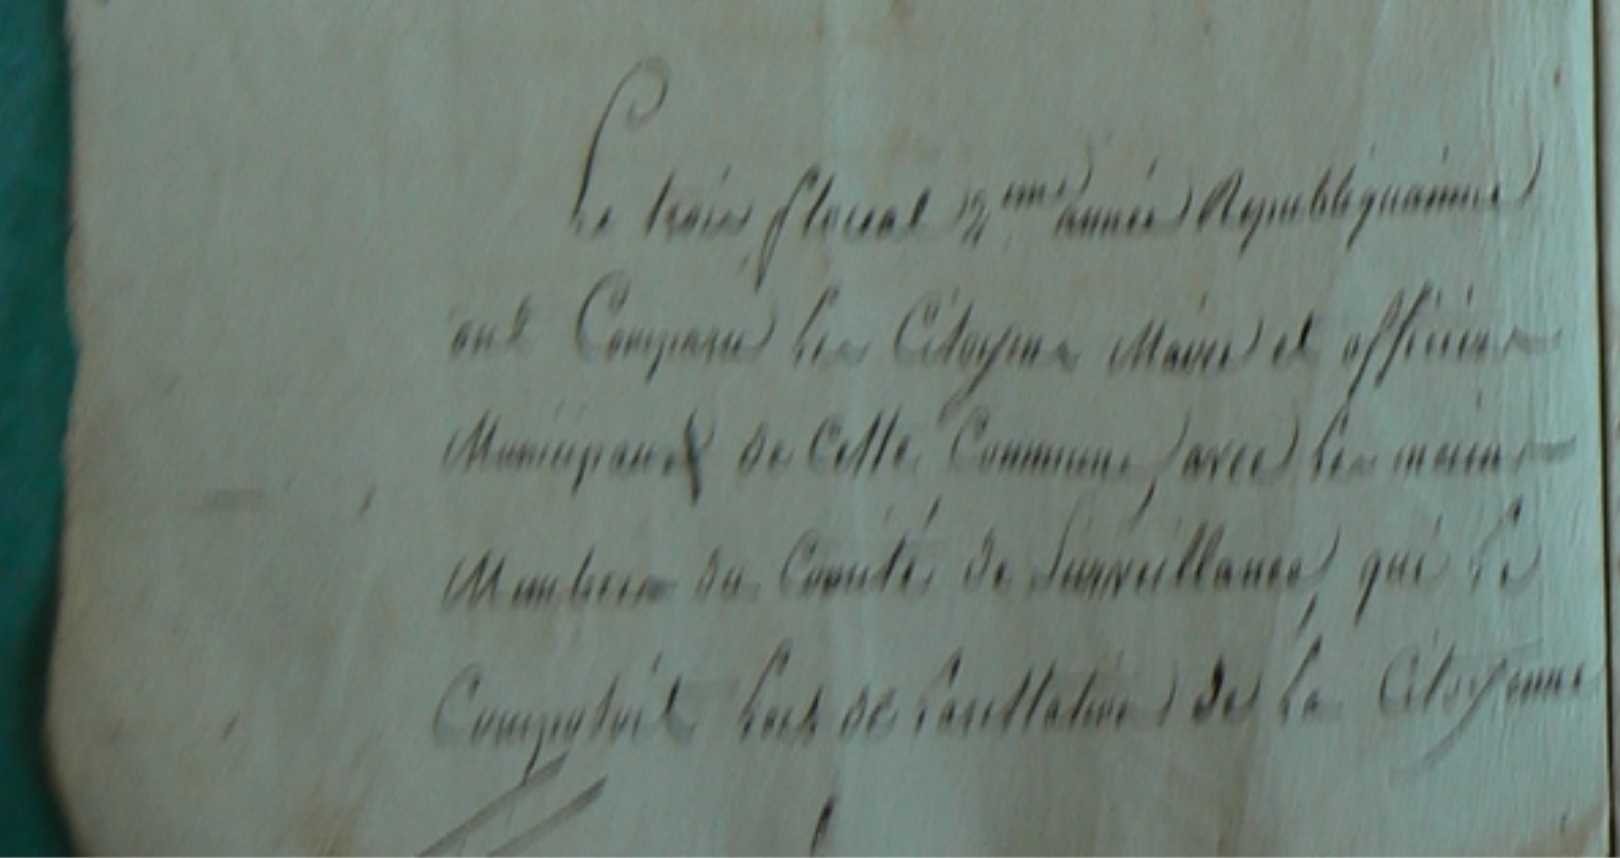 Le trois floreal 4eme année Republiquainne
ont Comparu les Citoyens Maire et officiers
Municipaux de Cette Commune, avec les
Membres du Comité de Surveillance, qui le
Composoit lors de l'arestation de la Citoyenne